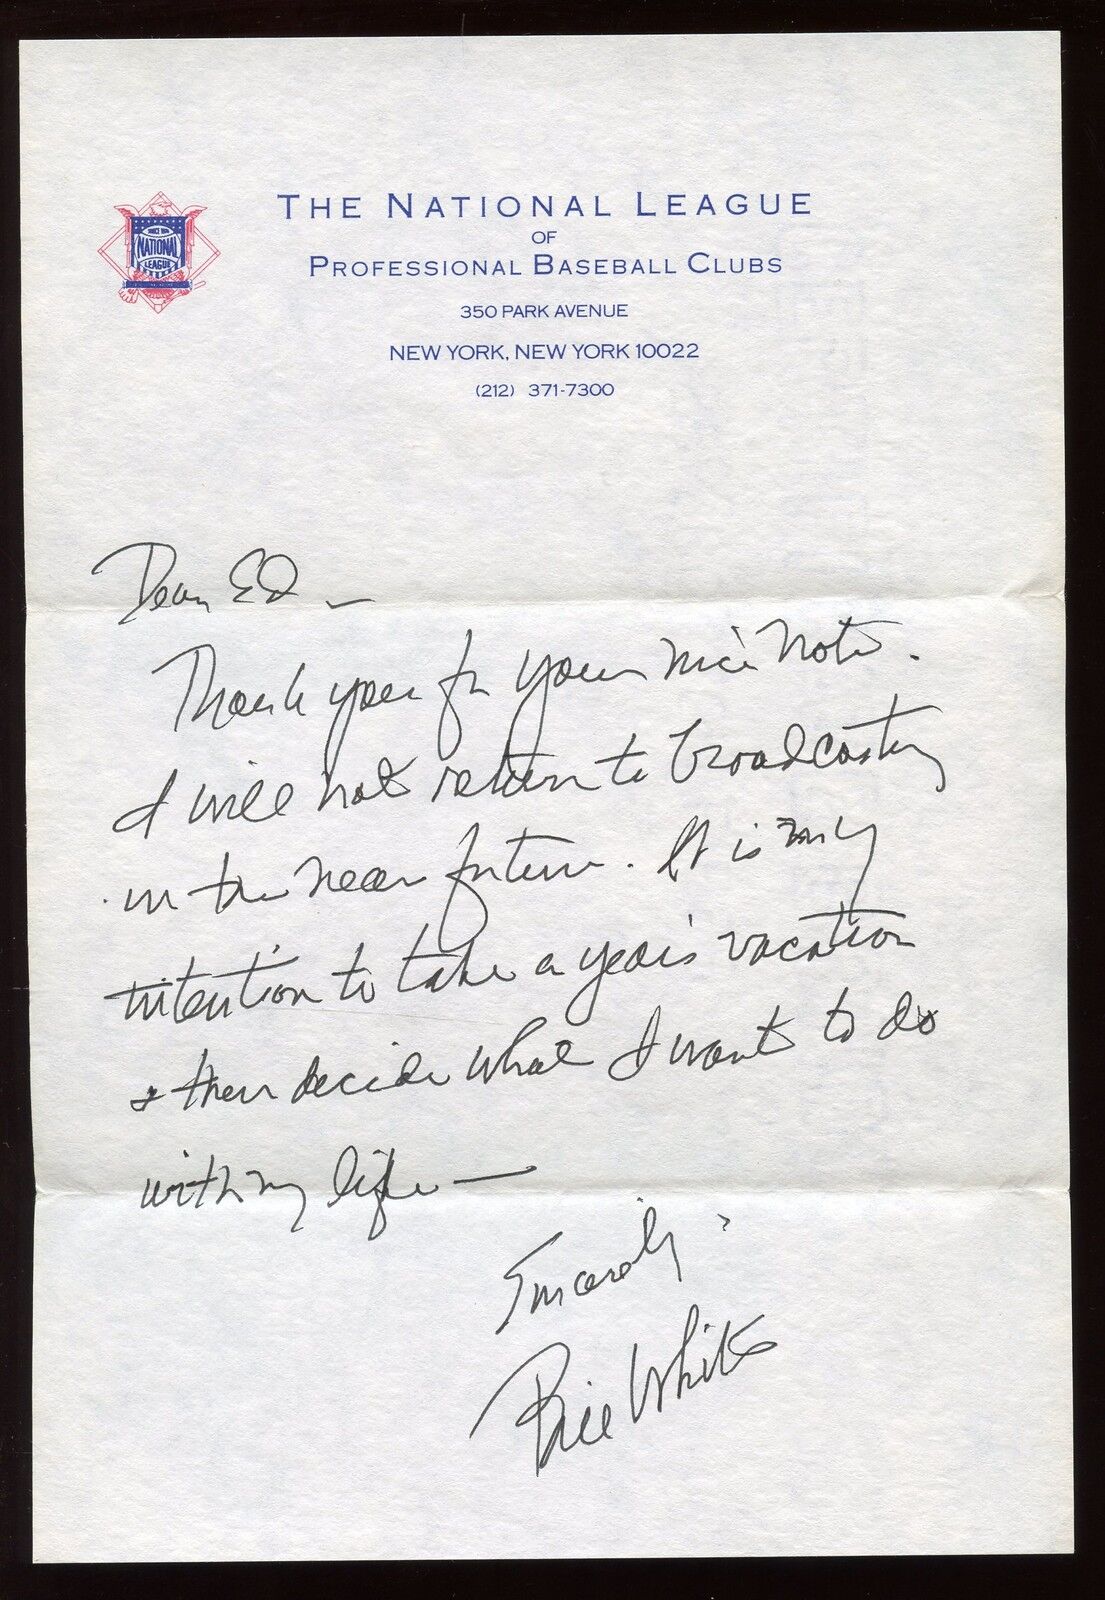 THE NATIONAL LEAGUE
OF
PROFESSIONAL BASEBALL CLUBS
350 PARK AVENUE
NEW YORK, NEW YORK 10022
(212) 371-7300
SINCE 1876
NATIONAL
LEAGUE
Dear Ed —
Thank you for your nice note.
I will not return to broadcasting
in the near future. It is my
intention to take a year's vacation
& then decide what I want to do
with my life —
Sincerely,
Bill White